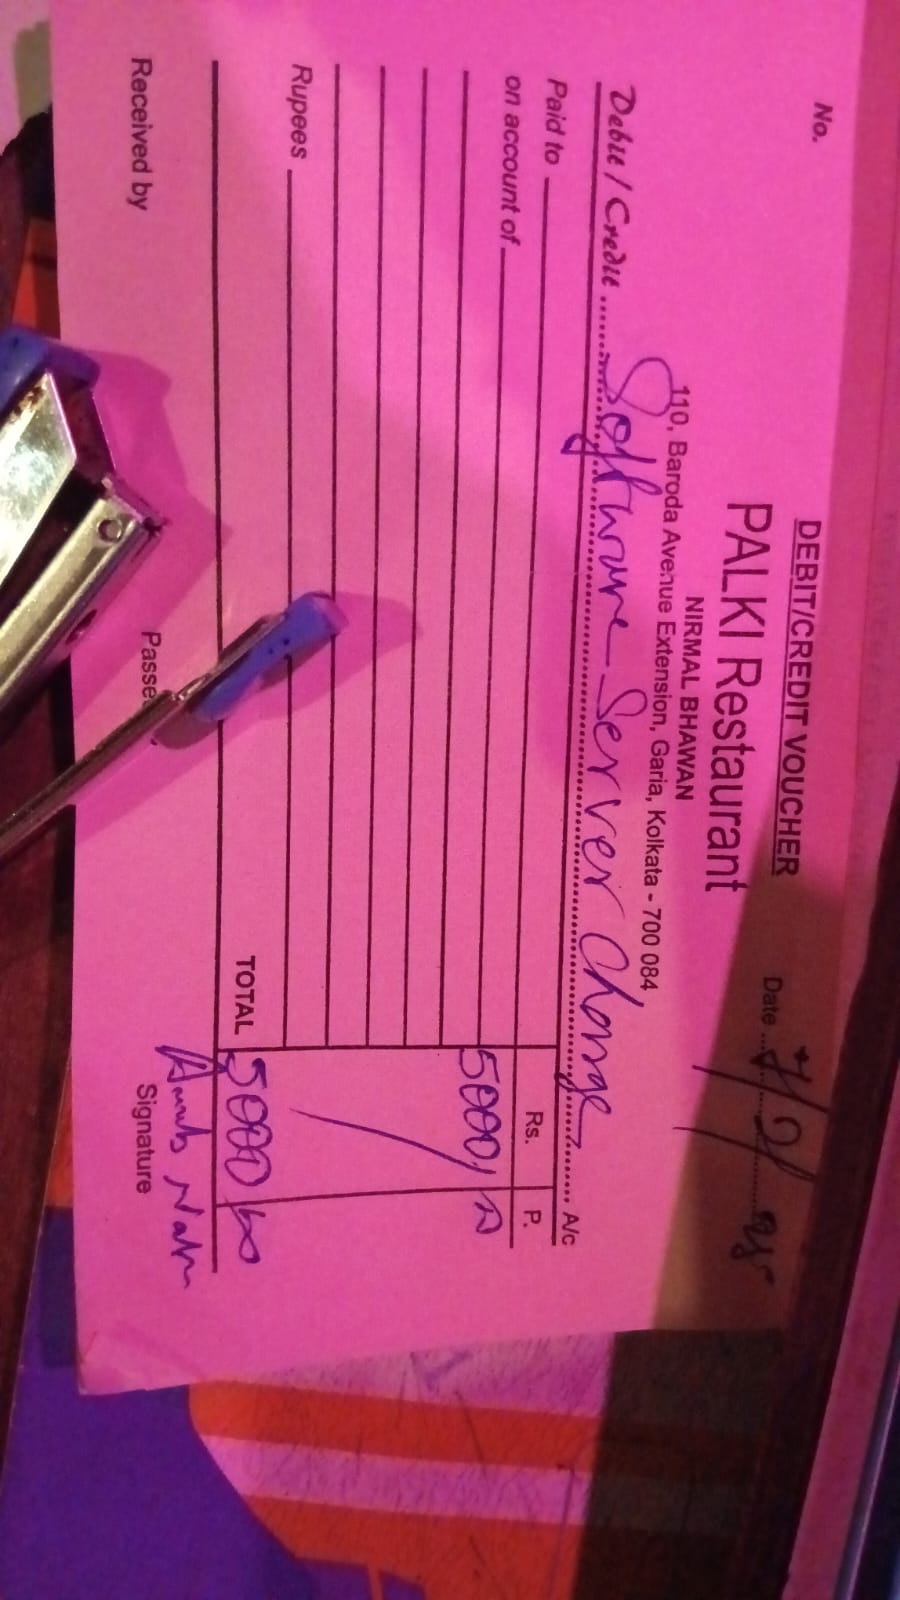 No.
DEBIT/CREDIT VOUCHER
PALKI Restaurant
NIRMAL BHAWAN
110, Baroda Avenue Extension, Garia, Kolkata - 700 084
Date
Debit / Credit Software Server Charge A/c
Paid to
Rs. P.
on account of
5000/
Rupees
TOTAL 5000
Received by Passe Signature